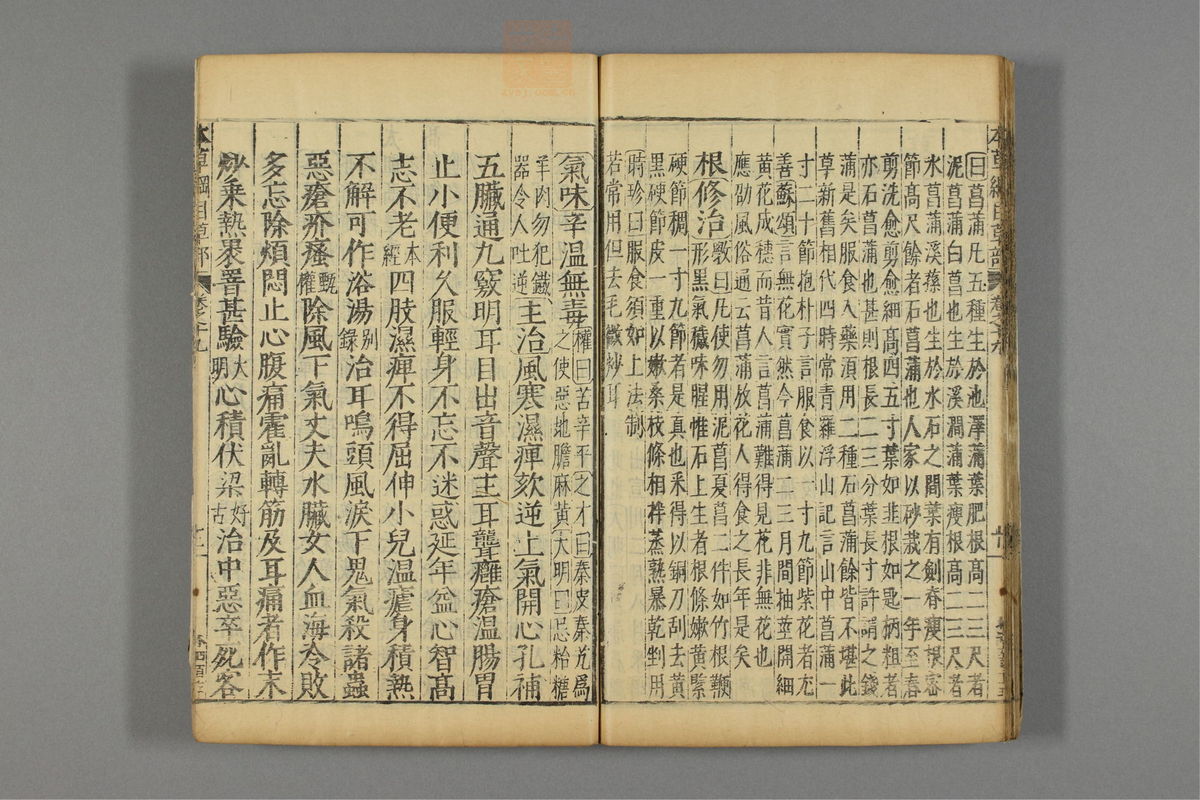 曰菖蒲凡五種生於池澤蒲葉肥根高二三尺者
泥菖蒲白菖也生於溪澗蒲葉瘦根高二三尺者
水菖蒲溪蓀也生於水石之間葉有劍脊瘦根密
節高尺餘者石菖蒲也人家以砂栽之一年至春
剪洗愈剪愈細高四五寸葉如韭根如匙柄粗者
亦石菖蒲也甚則根長二三分葉長寸許謂之錢
蒲是矣服食入藥須用二種石菖蒲餘皆不堪此
草新舊相代四時常青羅浮山記言山中菖蒲一
寸二十節抱朴子言服食以一寸九節紫花者尤
善蘇頌言無花實然今菖蒲二三月間抽莖開細
黃花成穗而昔人言菖蒲難得見花非無花也
應劭風俗通云菖蒲放花人得食之長年是矣
根修治斅曰凡使勿用泥菖夏菖二件如竹根鞭
形黑氣穢味腥惟石上生者根條嫩黃緊
硬節稠一寸九節者是真也采得以銅刀刮去黃
黑硬節皮一重以嫩桑枝條相拌蒸熟暴乾剉用
時珍曰服食須如上法制
若常用但去毛微炒耳
氣味辛溫無毒權曰苦辛平之才曰秦皮秦艽為
之使惡地膽麻黃大明曰忌飴糖
羊肉勿犯鐵
器令人吐逆主治風寒濕痺欬逆上氣開心孔補
五臟通九竅明耳目出音聲主耳聾癰瘡溫腸胃
止小便利久服輕身不忘不迷惑延年益心智高
志不老本經四肢濕痺不得屈伸小兒溫瘧身積熱
不解可作浴湯別錄治耳鳴頭風淚下鬼氣殺諸蟲
惡瘡疥瘙甄權除風下氣丈夫水臟女人血海冷敗
多忘除煩悶止心腹痛霍亂轉筋及耳痛者作末
炒乘熱裹罯甚驗大明心積伏梁好古治中惡卒死客
本草綱目草部
卷之十九